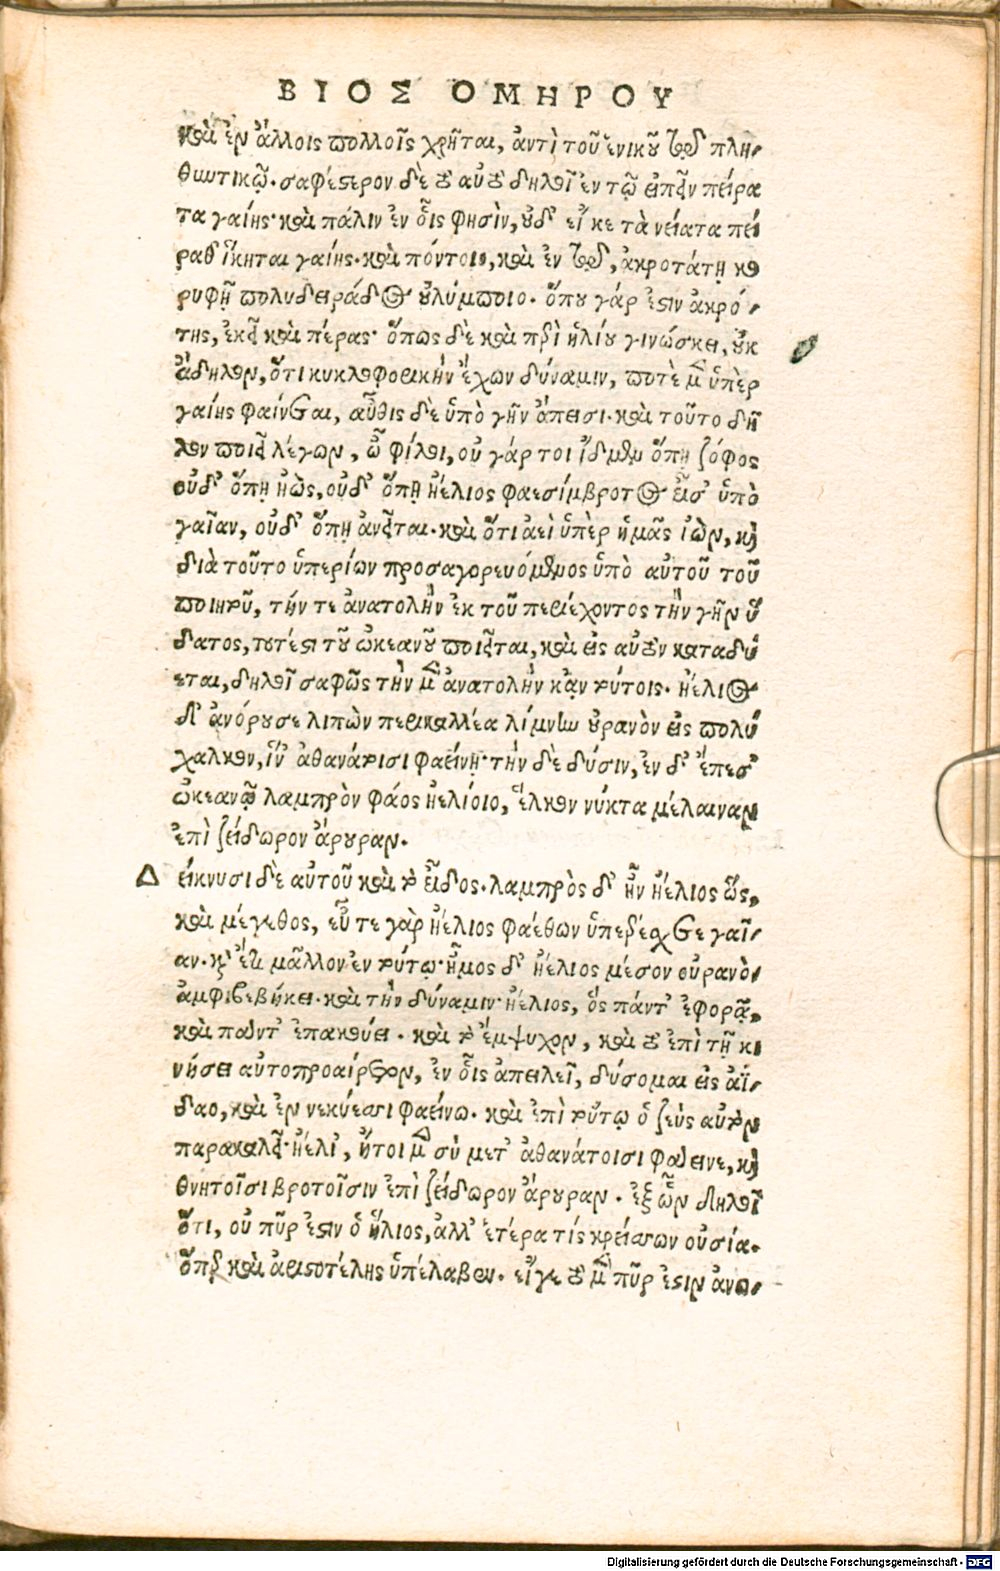 ΒΙΟΣ ΟΜΗΡΟΥ
καὶ ἐν ἄλλοις πολλοῖς χρῆται, ἀντὶ τοῦ ἑνικοῦ τῷ πλη-
θυντικῷ. σαφέστερον δὲ τὸ αὐτὸ δηλοῖ ἐν τῷ εἰπεῖν πείρα
τα γαίης· καὶ πάλιν ἐν οἷς φησὶν, οὐδ' εἴ κε τὰ νείατα πεί
ραθ' ἵκηται γαίης. καὶ πόντοιο, καὶ ἐν τῷ, ἀκροτάτῃ κο
ρυφῇ πολυδειράδος οὐλύμποιο. ὅπου γάρ ἐστιν ἀκρό-
της, ἐκεῖ καὶ πέρας· ὅπως δὲ καὶ περὶ ἡλίου γινώσκει, οὐκ
ἄδηλον, ὅτι κυκλοφορικὴν ἔχων δύναμιν, ποτὲ μὲν ὑπὲρ
γαίης φαίνεται, αὖθις δὲ ὑπὸ γῆν ἄπεισι. καὶ τοῦτο δῆ
λον ποιεῖ λέγων, ὦ φίλοι, οὐ γάρ τοι ἴδμεν ὅπῃ ζόφος
οὐδ' ὅπῃ ἠὼς, οὐδ' ὅπῃ ἠέλιος φαεσίμβροτος εἶσ' ὑπὸ
γαῖαν, οὐδ' ὅπῃ ἀνεῖται. καὶ ὅτι ἀεὶ ὑπὲρ ἡμᾶς ἰὼν, καὶ
διὰ τοῦτο ὑπερίων προσαγορευόμενος ὑπὸ αὐτοῦ τοῦ
ποιητοῦ, τήν τε ἀνατολὴν ἐκ τοῦ περιέχοντος τὴν γῆν ὕ
δατος, τουτέστι τοῦ ὠκεανοῦ ποιεῖται, καὶ εἰς αὐτὸν καταδύ
εται, δηλοῖ σαφῶς τὴν μὲν ἀνατολὴν κἀν τούτοις. ἠέλιος
δ' ἀνόρουσε λιπὼν περικαλλέα λίμνην οὐρανὸν εἰς πολύ
χαλκον, ἵν' ἀθανάτοισι φαείνῃ· τὴν δὲ δύσιν, ἐν δ' ἔπεσ'
ὠκεανῷ λαμπρὸν φάος ἠελίοιο, ἕλκον νύκτα μέλαιναν
ἐπὶ ζείδωρον ἄρουραν.
Δ είκνυσι δὲ αὐτοῦ καὶ τὸ εἶδος. λαμπρὸς δ' ἦν ἠέλιος ὥς,
καὶ μέγεθος, εὖτε γὰρ ἠέλιος φαέθων ὑπερέσχεθε γαῖ-
αν. καὶ ἔτι μᾶλλον ἐν τούτῳ· ἦμος δ' ἠέλιος μέσον οὐρανὸν
ἀμφιβεβήκει. καὶ τὴν δύναμιν· ἠέλιος, ὃς πάντ' ἐφορᾷ,
καὶ πάντ' ἐπακούει. καὶ τὸ ἔμψυχον, καὶ τὸ ἐπὶ τῇ κι
νήσει αὐτοπροαίρετον, ἐν οἷς ἀπειλεῖ, δύσομαι εἰς ἀΐ-
δαο, καὶ ἐν νεκύεσσι φαείνω. καὶ ἐπὶ τούτῳ ὁ ζεὺς αὐτὸν
παρακαλεῖ· ἠέλι', ἤτοι μὲν σὺ μετ' ἀθανάτοισι φάεινε, καὶ
θνητοῖσι βροτοῖσιν ἐπὶ ζείδωρον ἄρουραν. ἐξ ὧν δηλοῖ
ὅτι, οὐ πῦρ ἐστιν ὁ ἥλιος, ἀλλ' ἑτέρα τίς κρείσσων οὐσία.
ὅπερ καὶ ἀριστοτέλης ὑπέλαβεν. εἴγε τὸ μὲν πῦρ ἐστιν ἀνω-
Digitalisierung gefördert durch die Deutsche Forschungsgemeinschaft - DFG